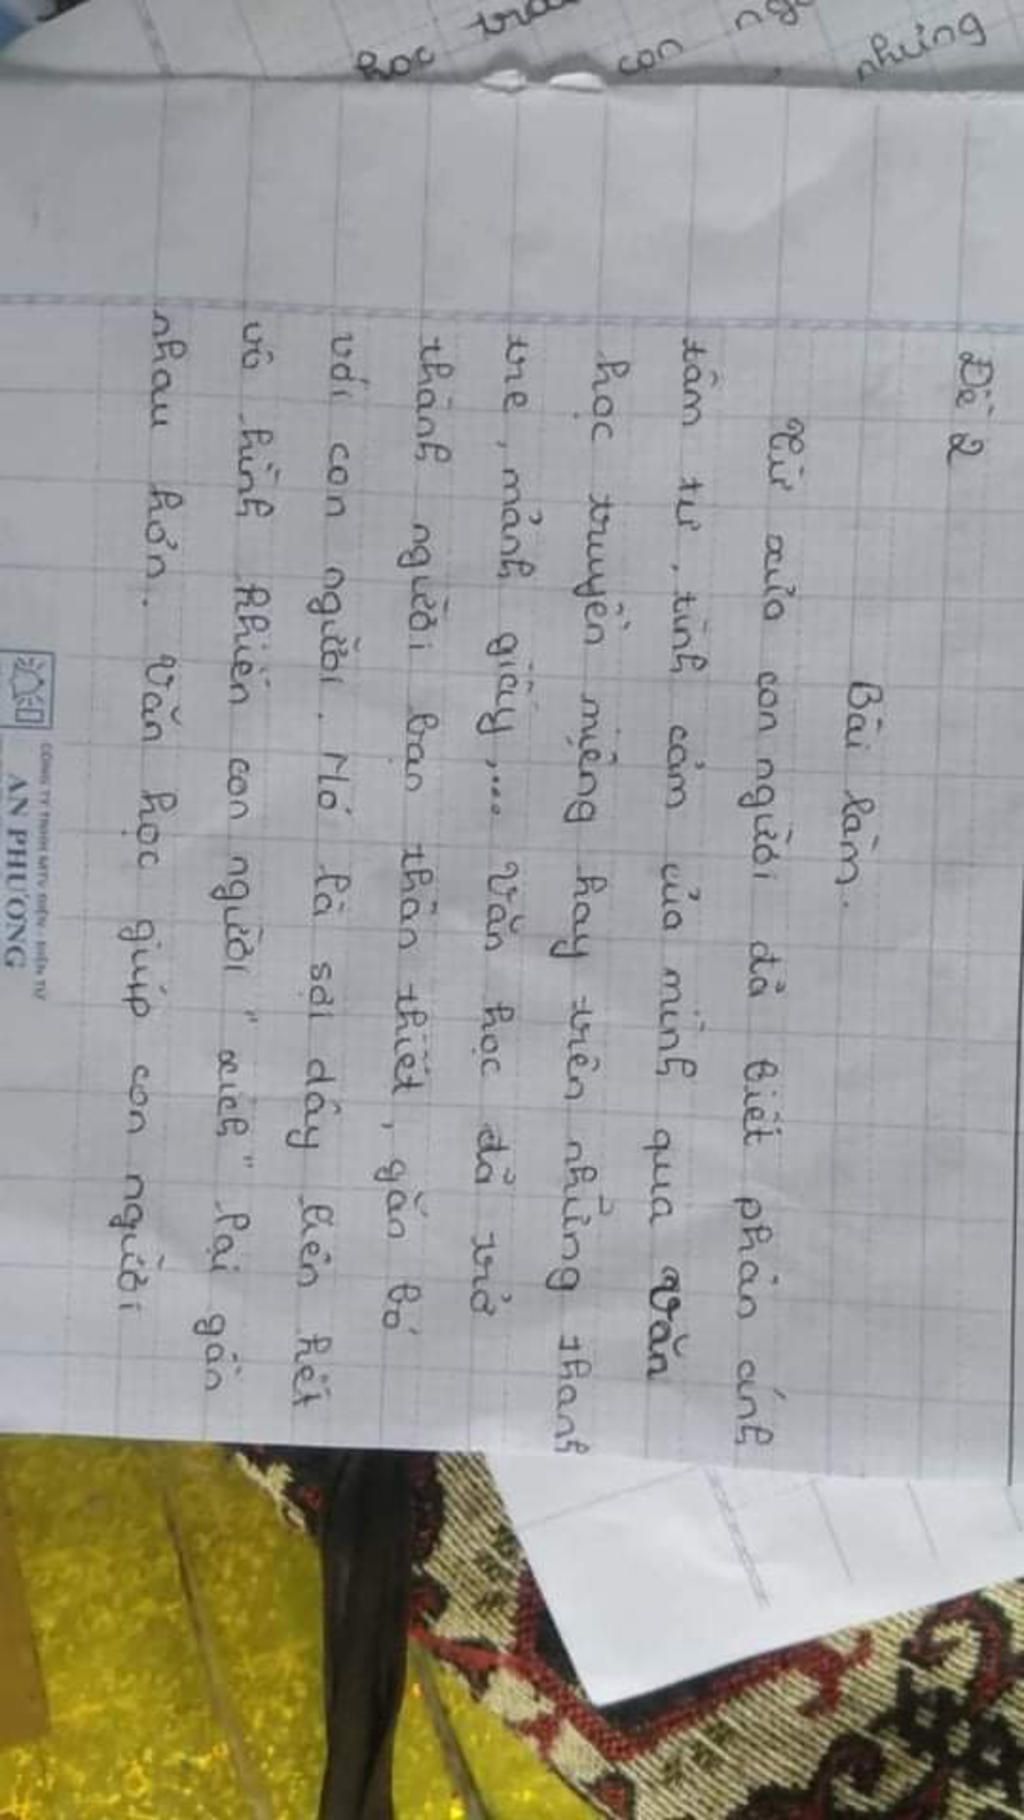 những
trò
học
Đề 2
Bài làm.
Từ xưa con người đã biết phản ánh
tâm tư, tình cảm của mình qua văn
học truyền miệng hay trên những thanh
tre, mảnh giấy,... Văn học đã trở
thành người bạn thân thiết, gắn bó
với con người. Nó là sợi dây liên kết
vô hình khiến con người "xích" lại gần
nhau hơn. Văn học giúp con người
CÔNG TY TNHH MTV ĐIỆN - ĐIỆN TỬ
AN PHƯƠNG